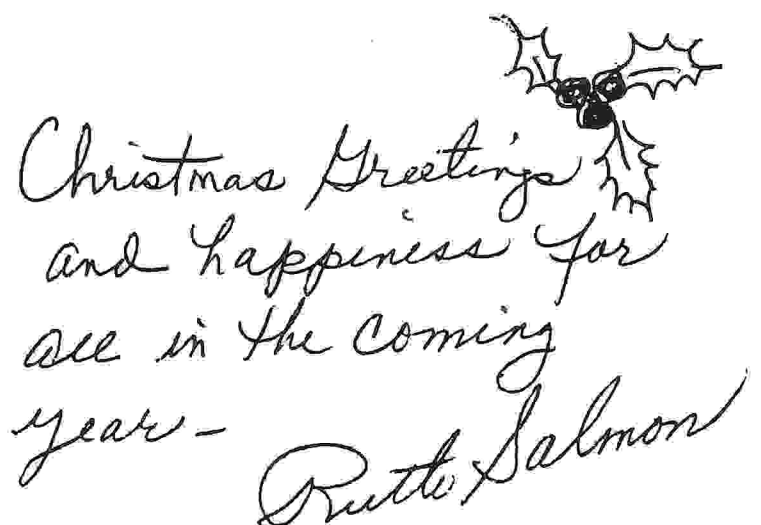 Christmas Greetings
and happiness for
all in the coming
year –
Ruth Salmon